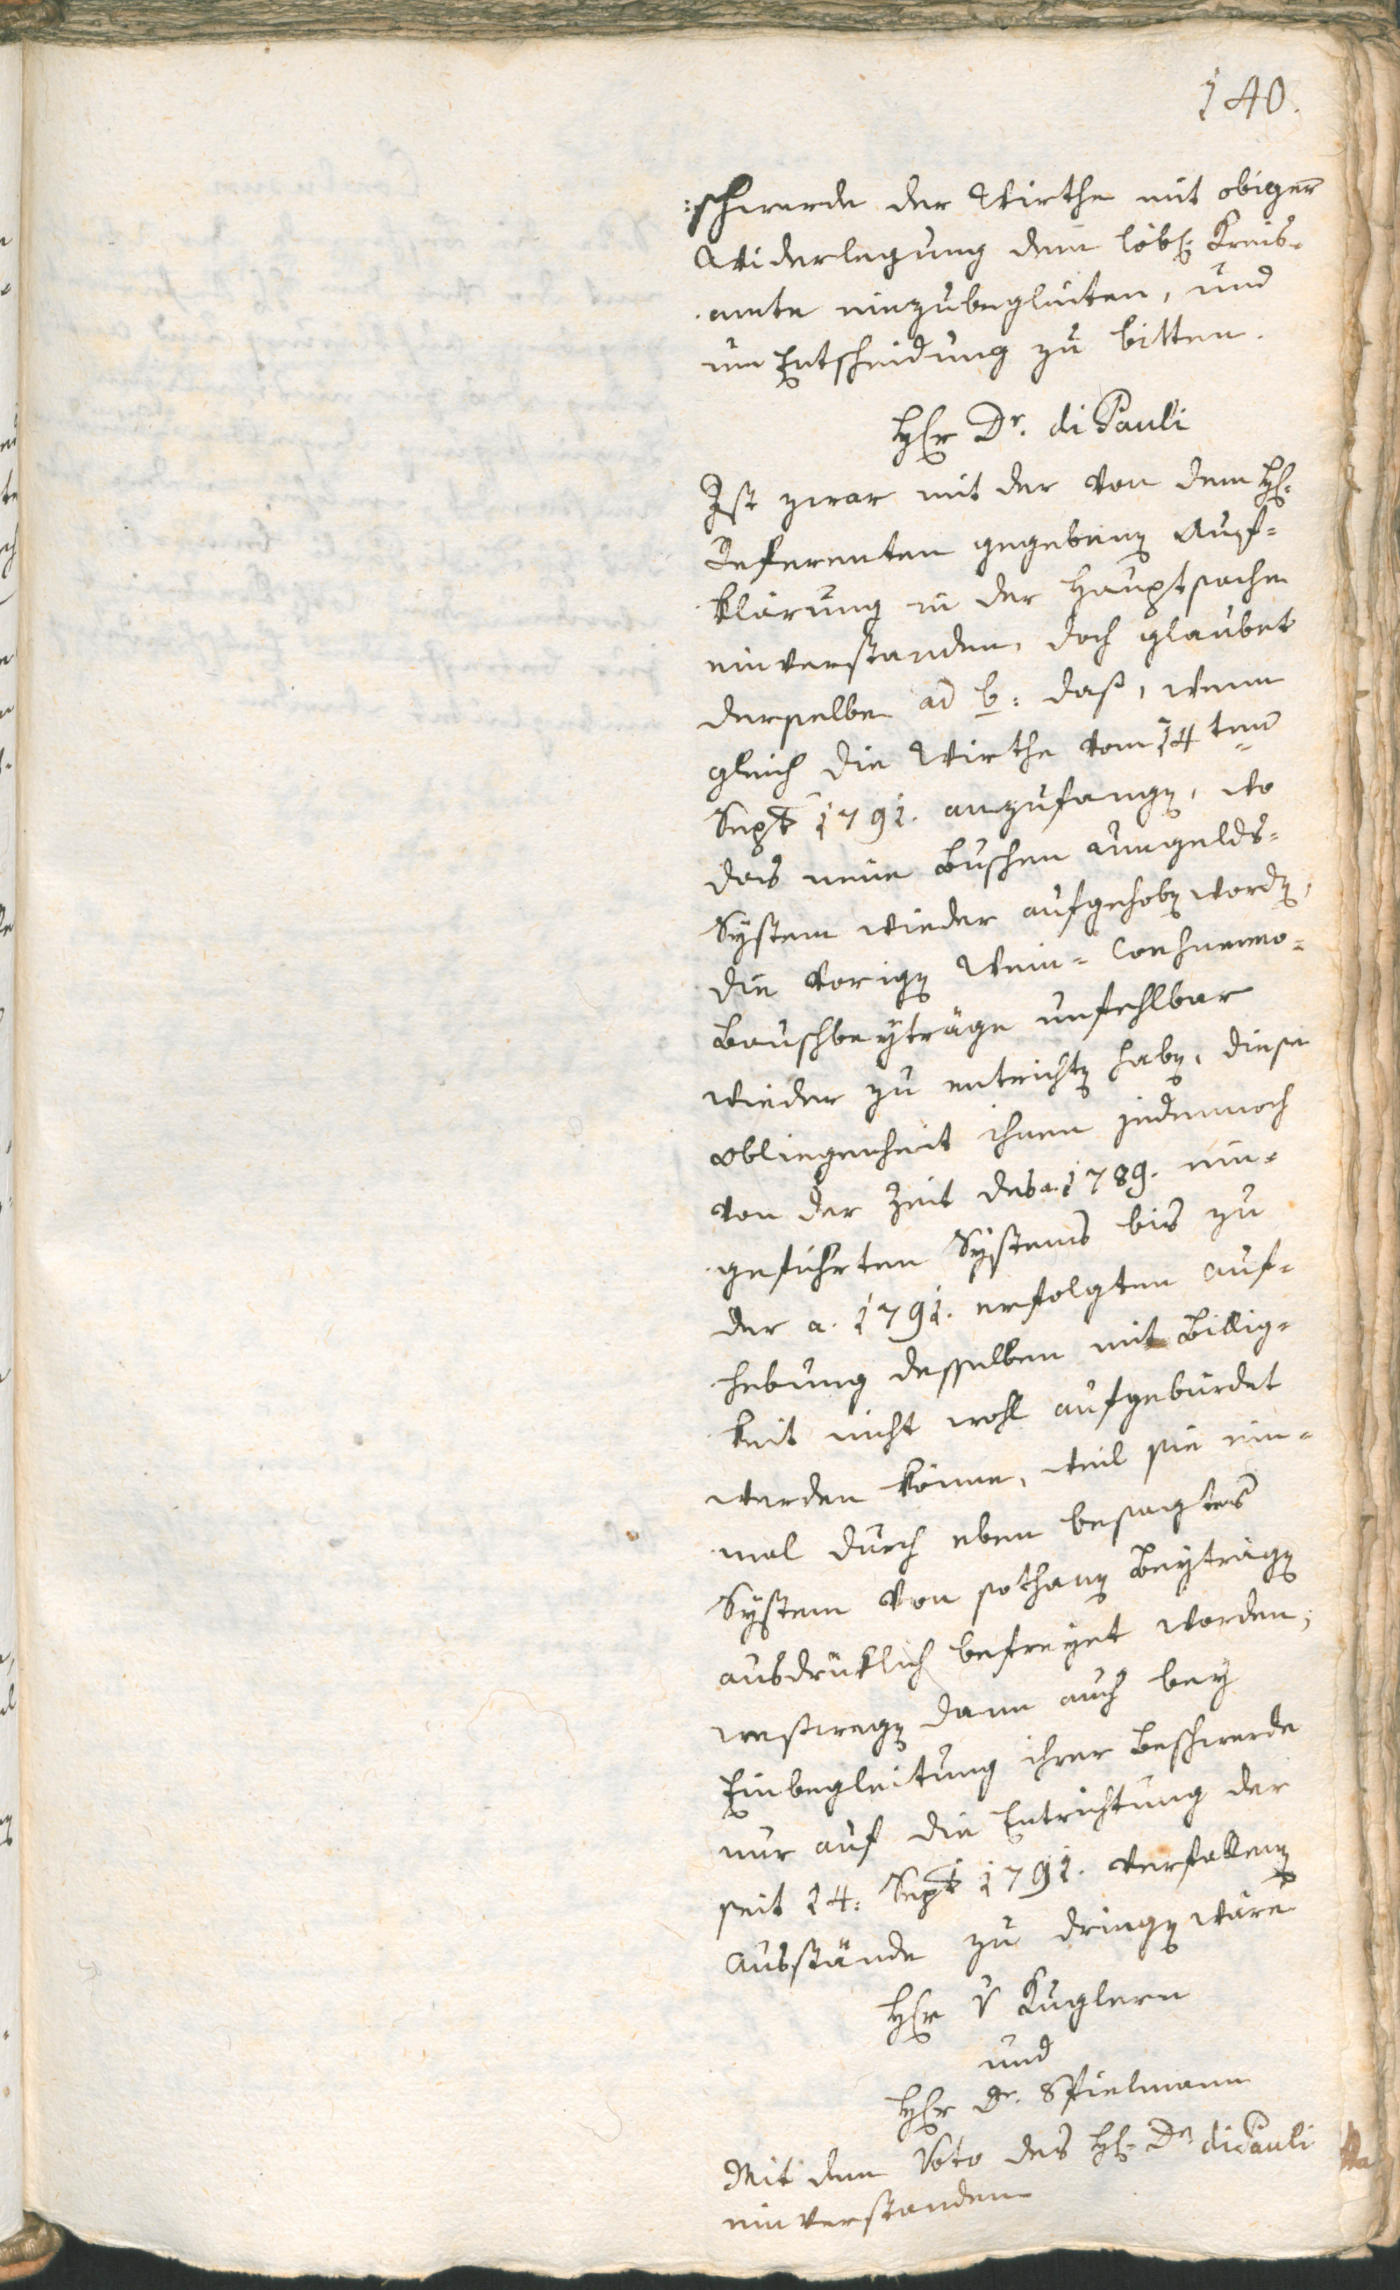 140.
:schwerde der Wirthe mit obiger
Widerlegung dem löbl: Kreis-
amte einzubegleiten, und
um Entscheidung zu bitten.
Herr Dr. di Pauli
Ist zwar mit der von dem H:
Referenten gegebenen Auf-
klärung in der Hauptsache
einverstanden, doch glaubet
derselbe ad b: daß, wenn
gleich die Wirthe vom 14ten
Sept 1791. anzufangen, wo
das neue Buschen Umgelds-
System wieder aufgehoben worden,
die vorigen Wein-
Bauschbeyträge unfehlbar
wieder zu entrichten haben, diese
Obliegenheit ihnen jedennoch
von der Zeit des a. 1789. ein-
geführten Systems bis zu
der a. 1791. erfolgten Auf-
hebung desselben mit Billig-
keit nicht wohl aufgebürdet
werden könne, weil sie ein-
mal durch eben besagtes
System von sothanen Beyträgen
ausdrücklich befreyet worden;
weßwegen dann auch bey
Einbegleitung ihrer Beschwerde
nur auf die Entrichtung der
seit 14: Sept 1791. verfallenen
Ausstände zu dringen wäre
Herr v Kuglern
und
Herr Dr. Spielmann
Mit dem Voto des H: Dr di Pauli
einverstanden